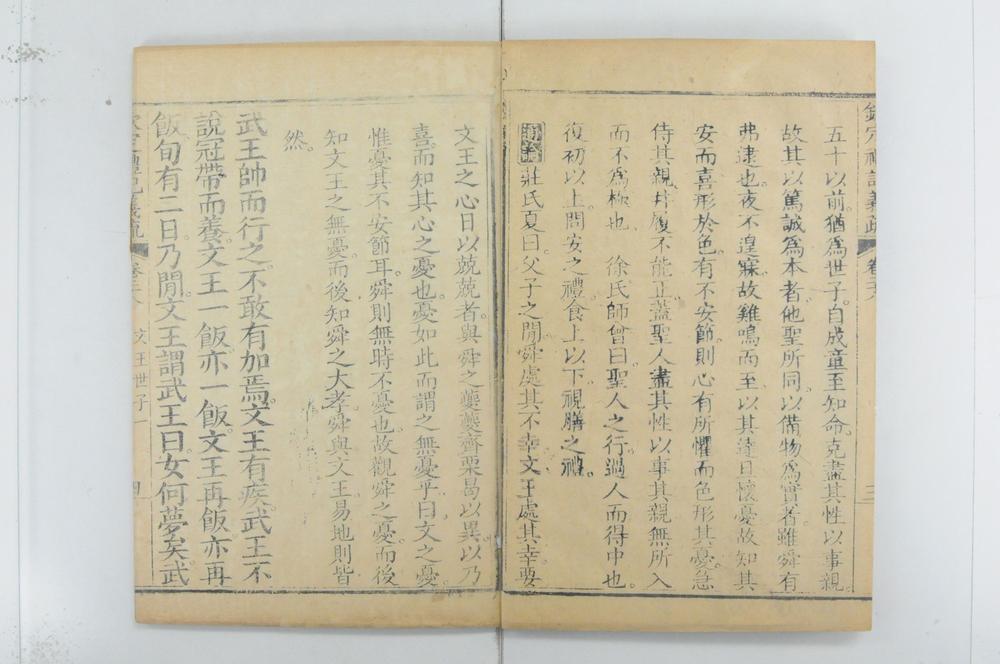 欽定禮記義疏 卷二十八 三
五十以前。猶爲世子。自成童至知命。克盡其性以事親。
故其以篤誠爲本者。他聖所同。以備物爲實者。雖舜有
弗逮也。夜不遑寐。故雞鳴而至。以其達日懷憂。故知其
安而喜形於色。有不安節。則心有所懼而色形其憂。急
侍其親。幷履不能正。蓋聖人盡其性以事其親。無所入
而不爲極也 徐氏師曾曰。聖人之行。過人而得中也。
復初以上。問安之禮。食上以下。視膳之禮。
通論 莊氏夏曰。父子之閒。舜處其不幸。文王處其幸。要
文王之心日以兢兢者。與舜之夔夔齊栗曷以異。以乃
喜。而知其心之憂也。憂如此而謂之無憂乎。曰文之憂。
惟憂其不安節耳。舜則無時不憂也。故觀舜之憂。而後
知文王之無憂。而後知舜之大孝。舜與文王易地則皆
然。
武王帥而行之。不敢有加焉。文王有疾。武王不
說冠帶而養。文王一飯。亦一飯。文王再飯。亦再
飯。旬有二日。乃閒。文王謂武王曰。女何夢矣。武
文王世子 四